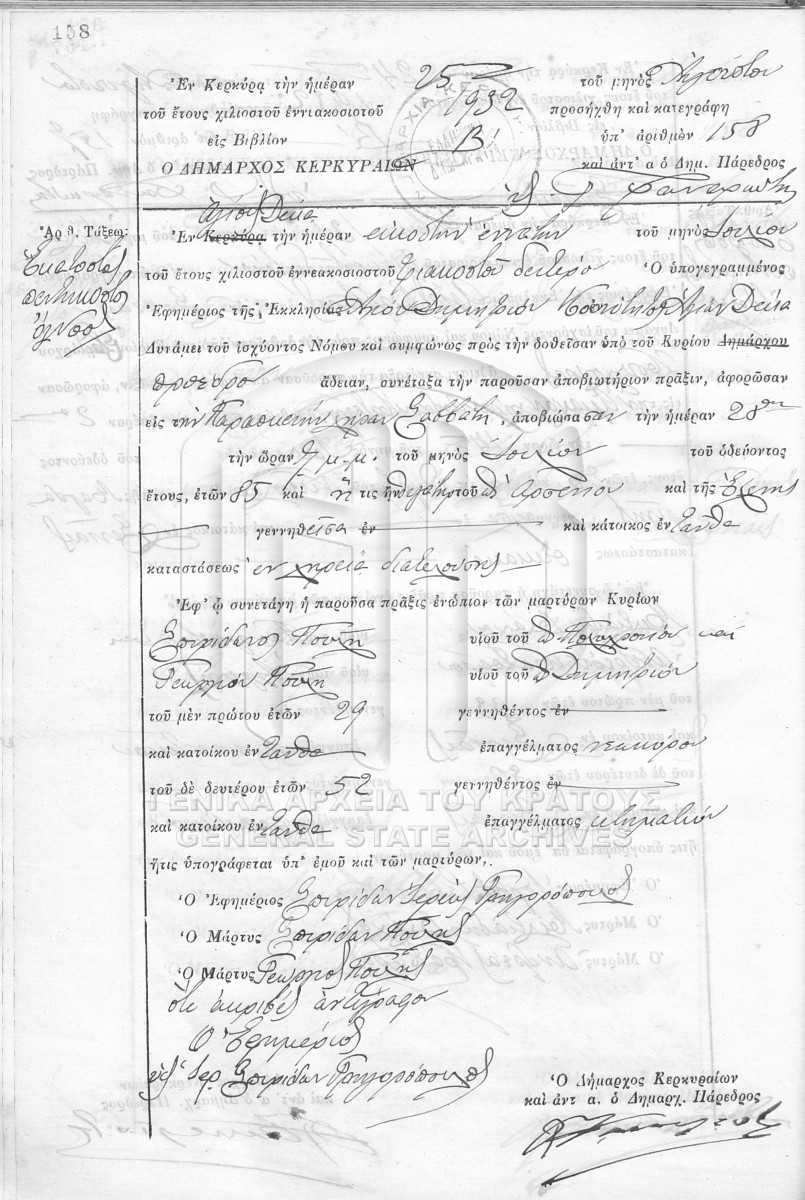 158
Ἐν Κερκύρᾳ τὴν ἡμέραν 25 τοῦ μηνὸς Αὐγούστου
τοῦ ἔτους χιλιοστοῦ ἐννιακοσιοτοῦ 1932 προσήχθη καὶ κατεγράφη
εἰς Βιβλίον Β! ὑπ' ἀριθμὸν 158
Ο ΔΗΜΑΡΧΟΣ ΚΕΡΚΥΡΑΙΩΝ καὶ ἀντ' α ὁ Δημ. Πάρεδρος
Ἁγίους Δέκα
Ἀρ θ. Τάξεω:
Ἑκατοστὸς
πεντηκοστὸς
ὄγδοος
Ἐν Κερκύρᾳ τὴν ἡμέραν εἰκοστὴν ἐνάτην τοῦ μηνὸς Ἰουλίου
τοῦ ἔτους χιλιοστοῦ ἐννεακοσιοστοῦ τριακοστοῦ δευτέρου Ὁ ὑπογεγραμμένος
Ἐφημέριος τῆς Ἐκκλησίας Ἁγίου Δημητρίου Κοινότητος Ἁγίων Δέκα
Δυνάμει τοῦ ἰσχύοντος Νόμου καὶ συμφώνως πρὸς τὴν δοθεῖσαν ὑπὸ τοῦ Κυρίου Δημάρχου
προέδρου ἄδειαν, συνέταξα τὴν παροῦσαν ἀποβιωτήριον πρᾶξιν, ἀφορῶσαν
εἰς τὴν Παρασκευὴν χήραν ἀποβιώσασαν τὴν ἡμέραν 28ην
τὴν ὥραν 7 μ.μ. τοῦ μηνὸς Ἰουλίου τοῦ ὁδεύοντος
ἔτους, ἐτῶν 85 καὶ ἥ τις ἦτο θυγάτηρ τοῦ Ἀρσενίου καὶ τῆς Ἑλένης
γεννηθεῖσα ἐν καὶ κάτοικος ἐνταῦθα
καταστάσεως ἐν χηρείᾳ διατελούσης
Ἐφ' ᾧ συνετάγη ἡ παροῦσα πρᾶξις ἐνώπιον τῶν μαρτύρων Κυρίων
Σπυρίδωνος Πουλῆ υἱοῦ τοῦ Πολυχρονίου καὶ
Γεωργίου Πουλῆ υἱοῦ τοῦ Δημητρίου
τοῦ μὲν πρώτου ἐτῶν 29 γεννηθέντος ἐν
καὶ κατοίκου ἐνταῦθα ἐπαγγέλματος
τοῦ δὲ δευτέρου ἐτῶν 52 γεννηθέντος ἐν
ΓΕΝΙΚΑ ΑΡΧΕΙΑ ΤΟΥ ΚΡΑΤΟΥΣ
καὶ κατοίκου ἐνταῦθα ἐπαγγέλματος κτηματίου
GENERAL STATE ARCHIVES
ἥτις ὑπογράφεται ὑπ' ἐμοῦ καὶ τῶν μαρτύρων.
Ὁ Ἐφημέριος Σπυρίδων Ἱερεὺς Γρηγορόπουλος
Ὁ Μάρτυς Σπυρίδων Πουλῆς
Ὁ Μάρτυς Γεώργιος Πουλῆς
ὅτι ἀκριβὲς ἀντίγραφον
Ὁ Ἐφημέριος
Σπυρίδων Γρηγορόπουλος
Ὁ Δήμαρχος Κερκυραίων
καὶ ἀντ α. ὁ Δημαρχ. Πάρεδρος